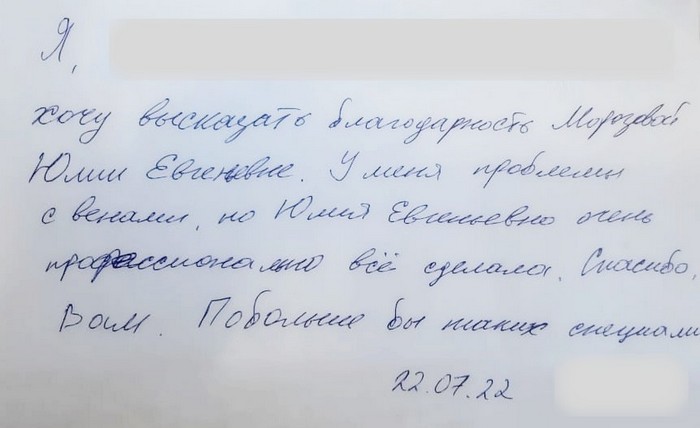 Я,
хочу высказать благодарность Морозовой
Юлии Евгеньевне. У меня проблемы
с венами, но Юлия Евгеньевна очень
профессионально всё сделала. Спасибо,
Вам. Побольше бы таких специали
22.07.22